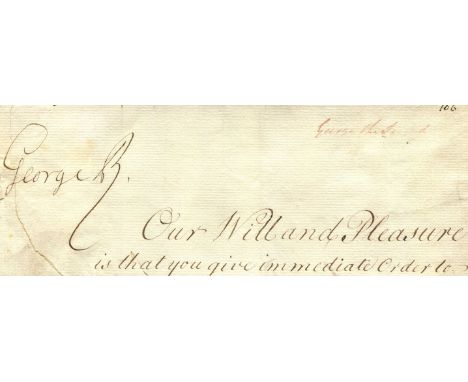 106
George the
George R.
Our Will and Pleasure
is that you give immediate Order to